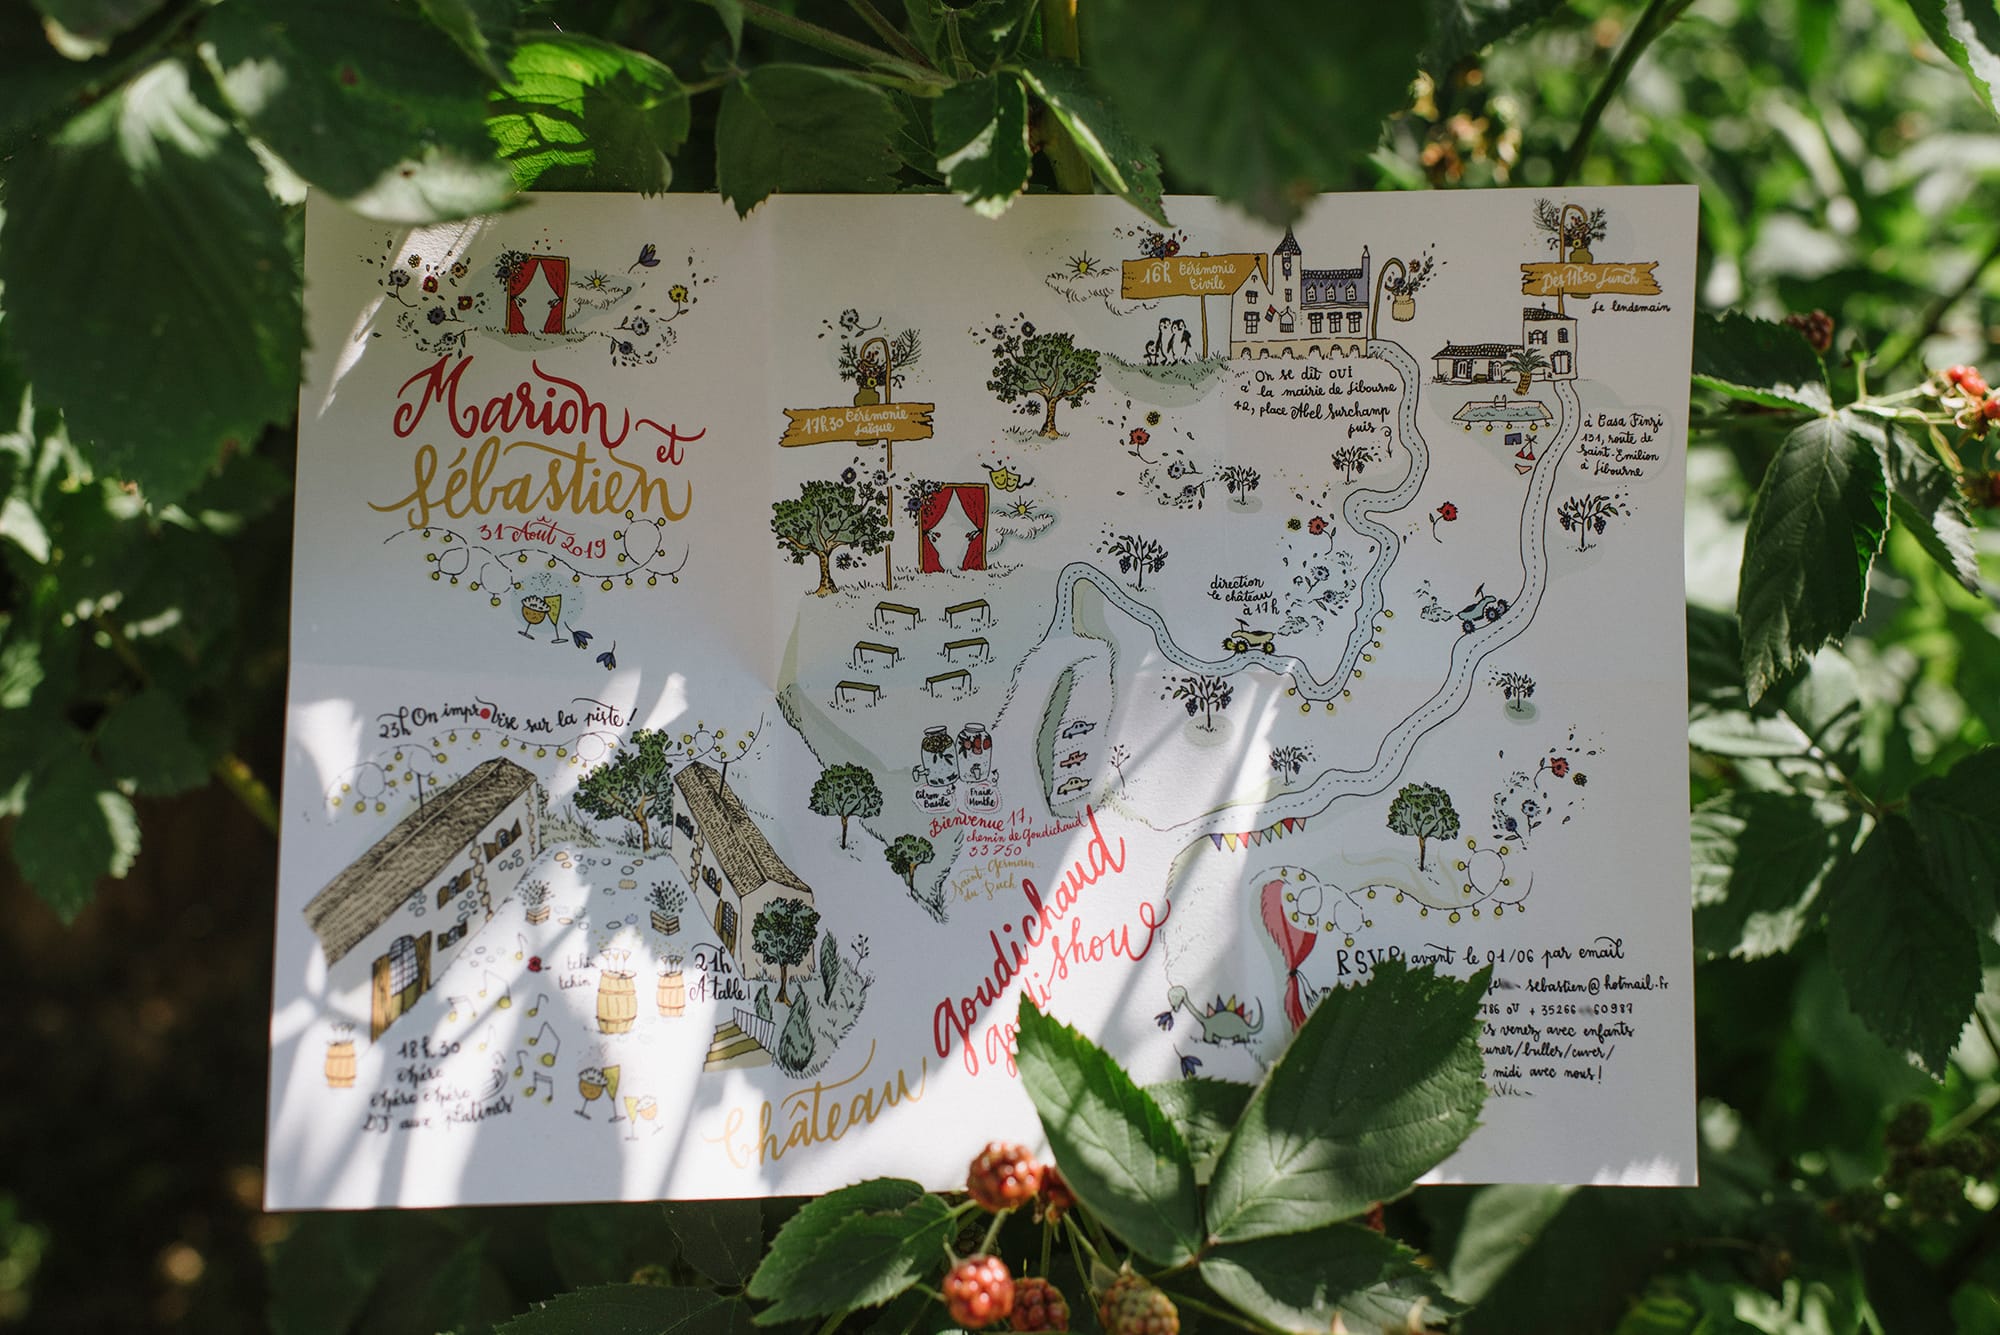 Marion et
Sébastien
31 Août 2019
16h Cérémonie
Civile
On se dit OUI
à la mairie de Libourne
42, place Abel Surchamp
puis
Dès 11h30 Lunch
Le lendemain
à Casa Finzi
131, route de
Saint-Emilion
à Libourne
17h30 Cérémonie
Laïque
direction
le château
à 17h
Citron
Basilic
Fraise
Menthe
Bienvenue 17,
chemin de Goudichaud
33750
Saint-Germain-
du-Puch
23h On improvise sur la piste !
tchin
tchin
21h
A table !
18h30
Apéro
Apéro Apéro
DJ aux platines
Château
Goudichaud
show
RSVP avant le 01/06 par email
sebastien@hotmail.fr
786 ou + 35266 60987
venez avec enfants
/bulles/cuver/
midi avec nous !